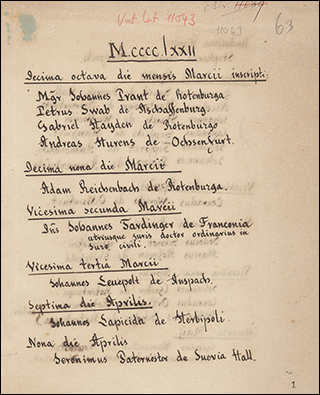 Vat lat 11043
11043
63
M.CCCC/XXII
Decima octava die mensis Marcii inscripti:
Mgr Johannes Prant de Rotenburga
Petrus Swab de Aschaffenburg.
Gabriel Hayden de Rotenburgo
Andreas Hurens de Ochsenfurt.
Decima nona die Marcii
Adam Reichenbach de Rotenburga.
Vicesima secunda Marcii
Dns Johannes Tardinger de Franconia
utriusque juris doctor ordinarius in
jure civili.
Vicesima tertia Marcii
Johannes Leuepolt de Anspach.
Septima die Aprilis.
Johannes Lapicida de Herbipoli.
Nona die Aprilis
Jeronimus Paternoster de Suevia Hall.
1